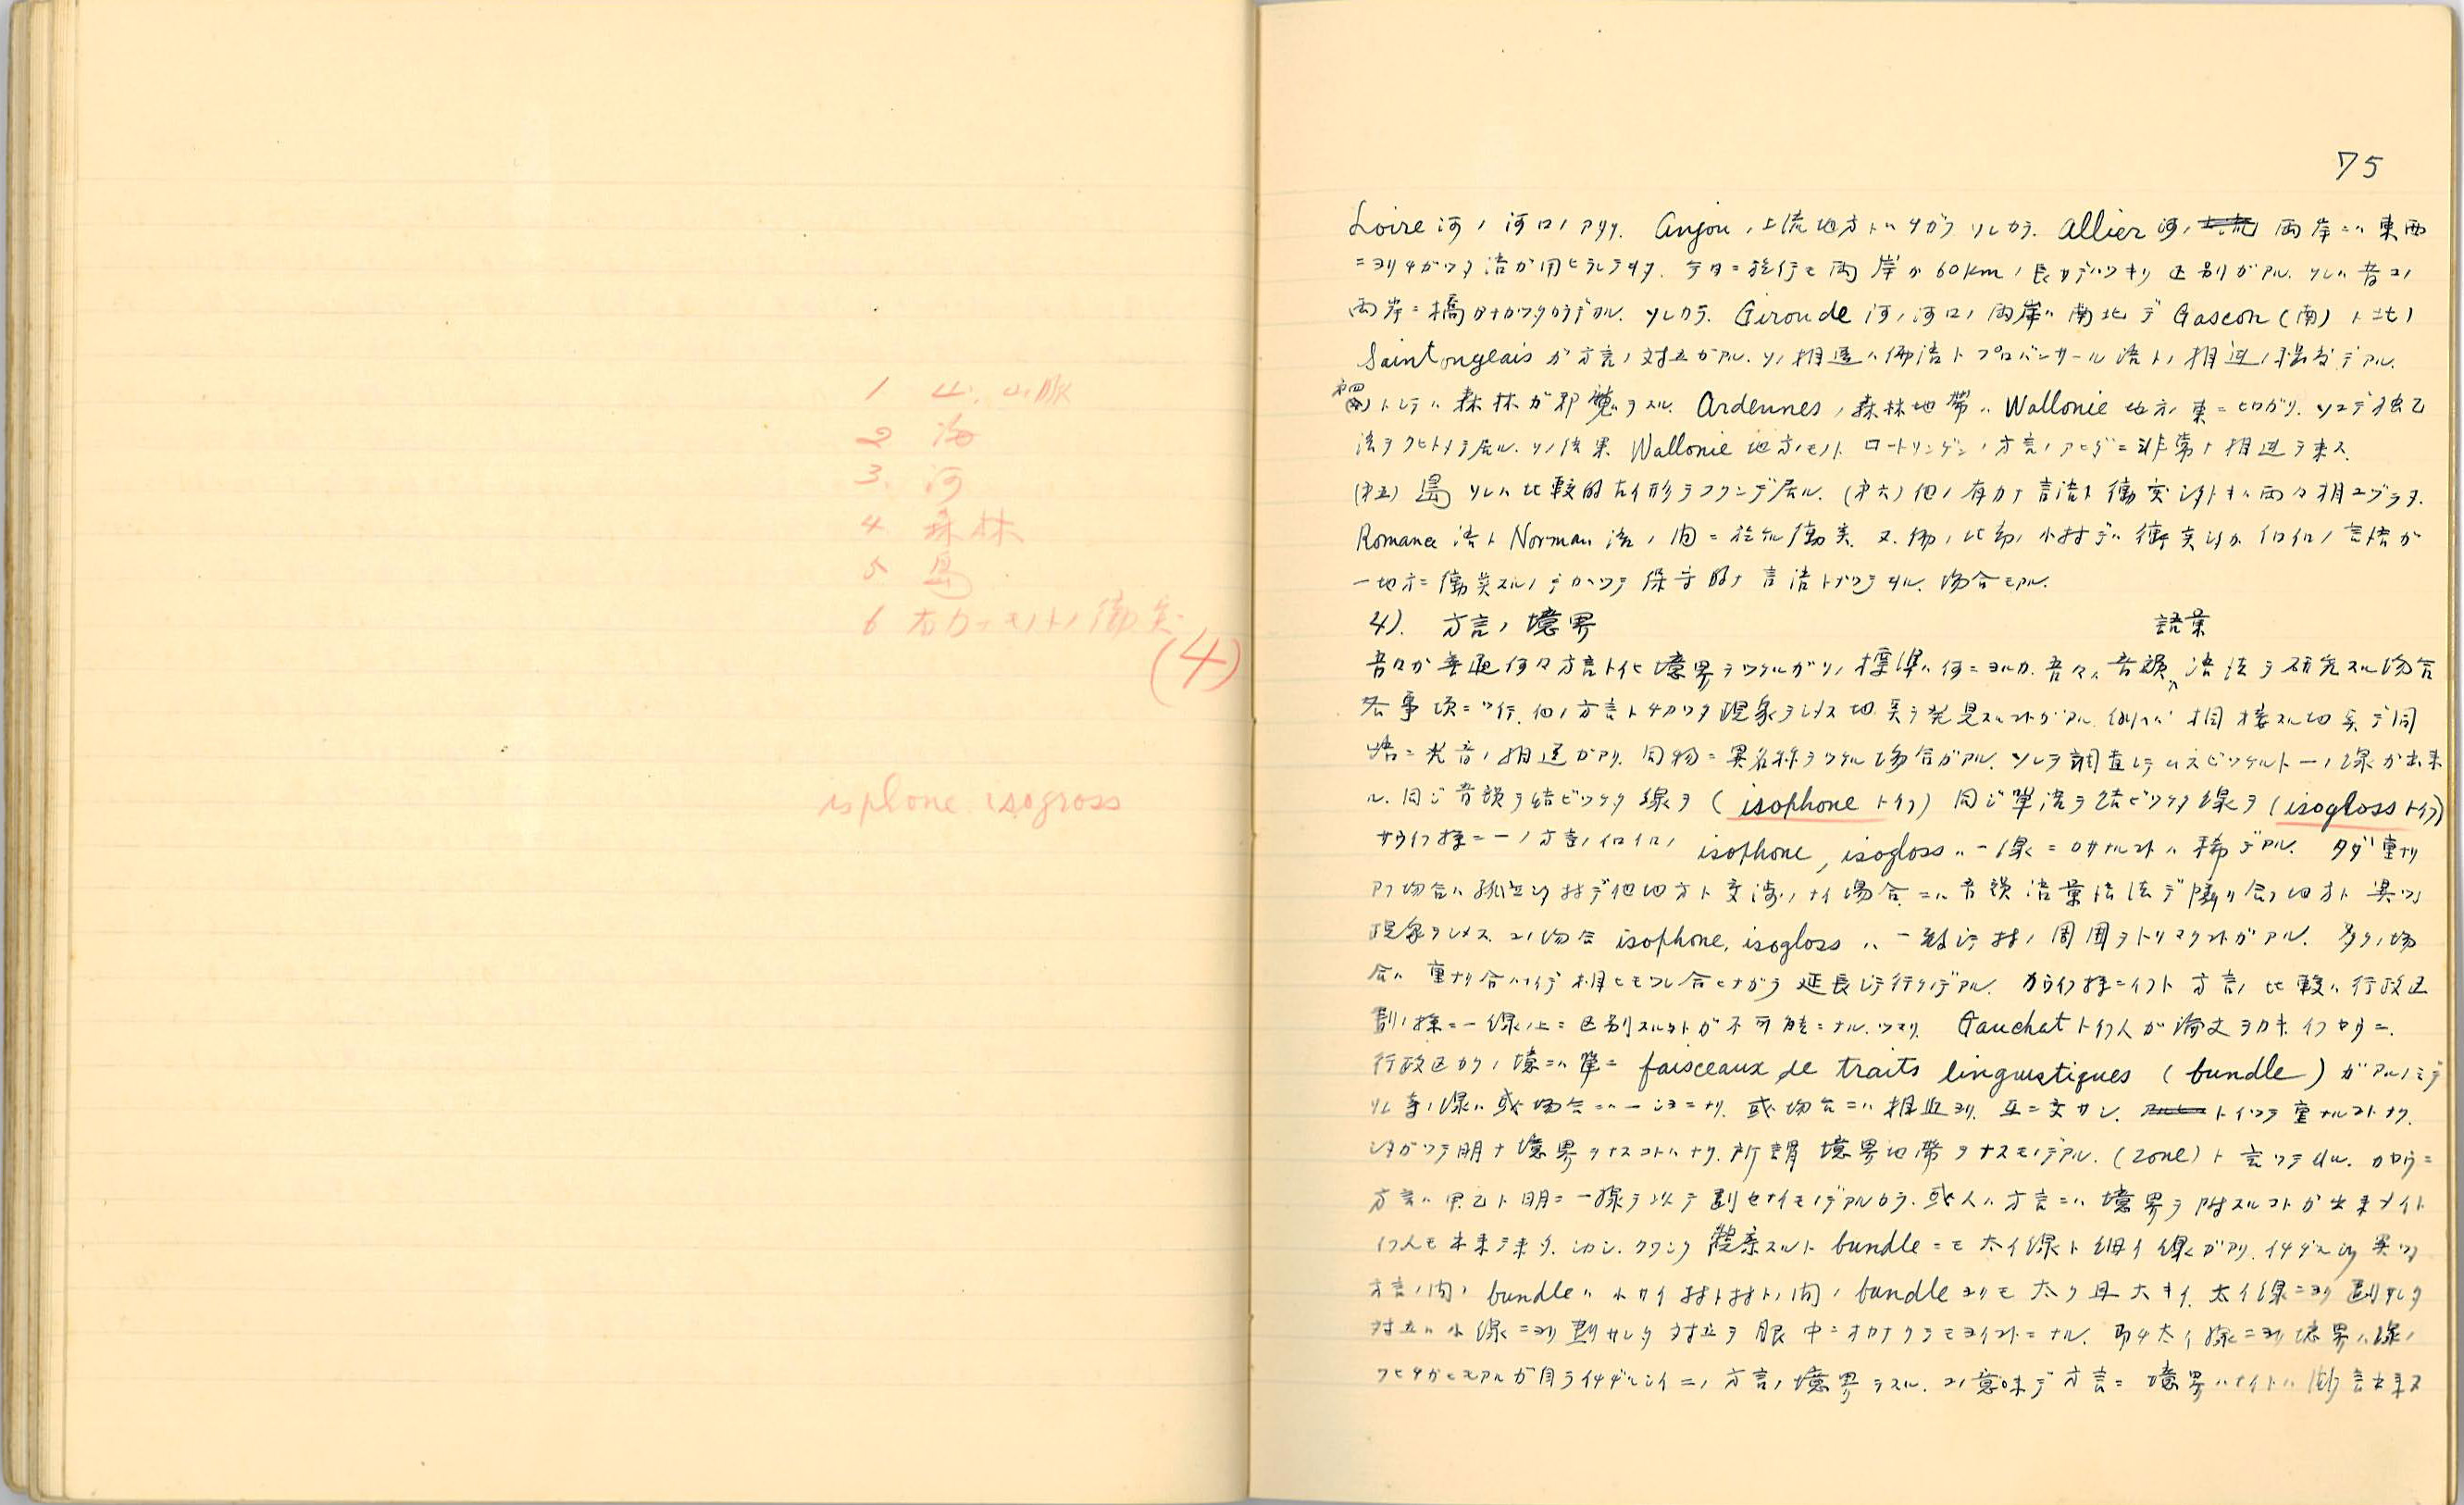 1 山. 山脈
2 海
3. 河
4. 森林
5 島
6 有力ナモノトノ衝突
(4)
isplone isogross
75
Loire 河ノ河口ノアタリ. Anjou ノ上流地方トハチガフ ソレカラ. Allier 河ノ 両岸ニハ東西
ニヨリチガッタ語ガ用ヒラレテヰタ. 今日ニ於行モ両岸ガ60kmノ長サデハッキリ区別ガアル. ソレハ昔コノ
両岸ニ橋ガナカッタカラデアル. ソレカラ. Gironde 河ノ河口ノ両岸ハ南北デ Gascon (南) ト北ノ
Saintongeais ガ方言ノ対立ガアル. ソノ相違ハ佛語トプロバンサール語トノ相違ノ デアル.
第四 トシテハ森林ガ邪魔ヲスル. Ardennes ノ森林地帯ハ Wallonie 地方ノ東ニヒロガリ. ソコデ独乙
語ヲクヒトメテ居ル. ソノ結果 Wallonie 地方ノモノト ロートリンゲンノ方言ノアヒダニ非常ナ相違ヲ来ス.
(第五) 島 ソレハ比較的古イ形ヲフクンデ居ル. (第六) 他ノ有力ナ言語ト衝突シタトキハ両々相ユヅラヌ.
Romance 語ト Norman 語ノ間ニ於ケル衝突. 又. 佛ノ北部ノ小村デハ衝突シタガ イロイロノ言語ガ
一地方ニ衝突スルノデカヘッテ保守的ナ言語トナッテヰル. 場合モアル.
4). 方言ノ境界
語彙
吾々ガ普通何々方言ト化境界ヲツケルガソノ標準ハ何ニヨルカ. 吾々ハ音韻 語法ヲ研究スル場合
各事項ニツ行. 他ノ方言トチガッタ現象ヲシメス地点ヲ発見スルコトガアル. 例ヘバ相接スル地点デ同
語ニ発音ノ相違ガアリ. 同物ニ異名称ヲツケル場合ガアル. ソレヲ調査シテムスビツケルト一ノ線ガ出来
ル. 同ジ音韻ヲ結ビツケタ線ヲ (isophone トイフ) 同ジ単語ヲ結ビツケタ線ヲ (isogloss トイフ)
サウイフ様ニ一ノ方言ノイロイロノ isophone, isogloss ハ一線ニ ハ稀デアル. タダ重ナリ
アフ場合ハ孤立シタ村デ他地方ト交渉ノナイ場合ニハ音韻語彙語法デ隣リ合フ地方ト異ツタ
現象ヲシメス. コノ場合 isophone, isogloss ハ一致シテ村ノ周囲ヲトリマクコトガアル. 多クノ場
合ハ重ナリ合ハイデ相ヒモツレ合ヒナガラ延長シテ行クノデアル. カウイフ様ニイフト方言ノ比較ハ行政区
劃ノ様ニ一線ノ上ニ区別スルコトガ不可能ニナル. ツマリ. Gauchat トイフ人ガ論文ヲカキ. イフヤウニ.
行政区カクノ境ニハ単ニ faisceaux de traits linguistiques (bundle) ガアルノミデ
ソレ等ノ線ハ或場合ニハ一ショニナリ. 或場合ニハ相近ヨリ. 互ニ交サシ. トイッテ重ナルコトナク.
シタガッテ明ナ境界ヲナスコトハナク. 所謂境界地帯ヲナスモノデアル. (zone) ト言ッテヰル. カヤウニ
方言ハ甲乙ト明ニ一線ヲ以テ劃セナイモノデアルカラ. 或人ハ方言ニハ境界ヲ附スルコトガ出来ナイト
イフ人モ出来テ来タ. シカシ. クワシク観察スルト bundle ニモ太イ線ト細イ線ガアリ. イチヂルシク異ツタ
方言ノ間ノ bundle ハ小サイ村ト村トノ間ノ bundle ヨリモ太ク且大キイ. 太イ線ニヨリ劃サレタ
対立ハ小線ニヨリ劃サレタ対立ヲ眼中ニオカナクテモヨイコトニナル. 即チ太イ線ニヨリ境界ノ線ノ
クヒチガヒモアルガ自ライチヂルシイ ノ方言ノ境界ヲスル. コノ意味デ方言ニ境界ハナイトハ断言出来ヌ